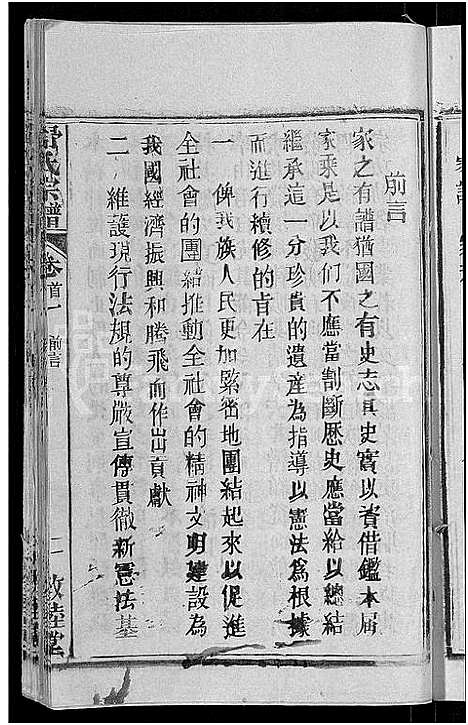 前言
家之有譜猶國之有史志真史實以資借鑑本屆
家乘是以我們不應當割斷歷史應當給以總結
繼承這一分珍貴的遺産為指導以憲法為根據
而進行續修的旨在
一 俾我族人民更加緊密地團結起來以促進
全社會的團結推動全社會的精神文明建設為
我國經濟振興和騰飛而作出貢獻
二 維護現行法規的尊嚴宣傳貫徹新憲法基
氏宗譜
卷首一 前言
二 敦睦堂